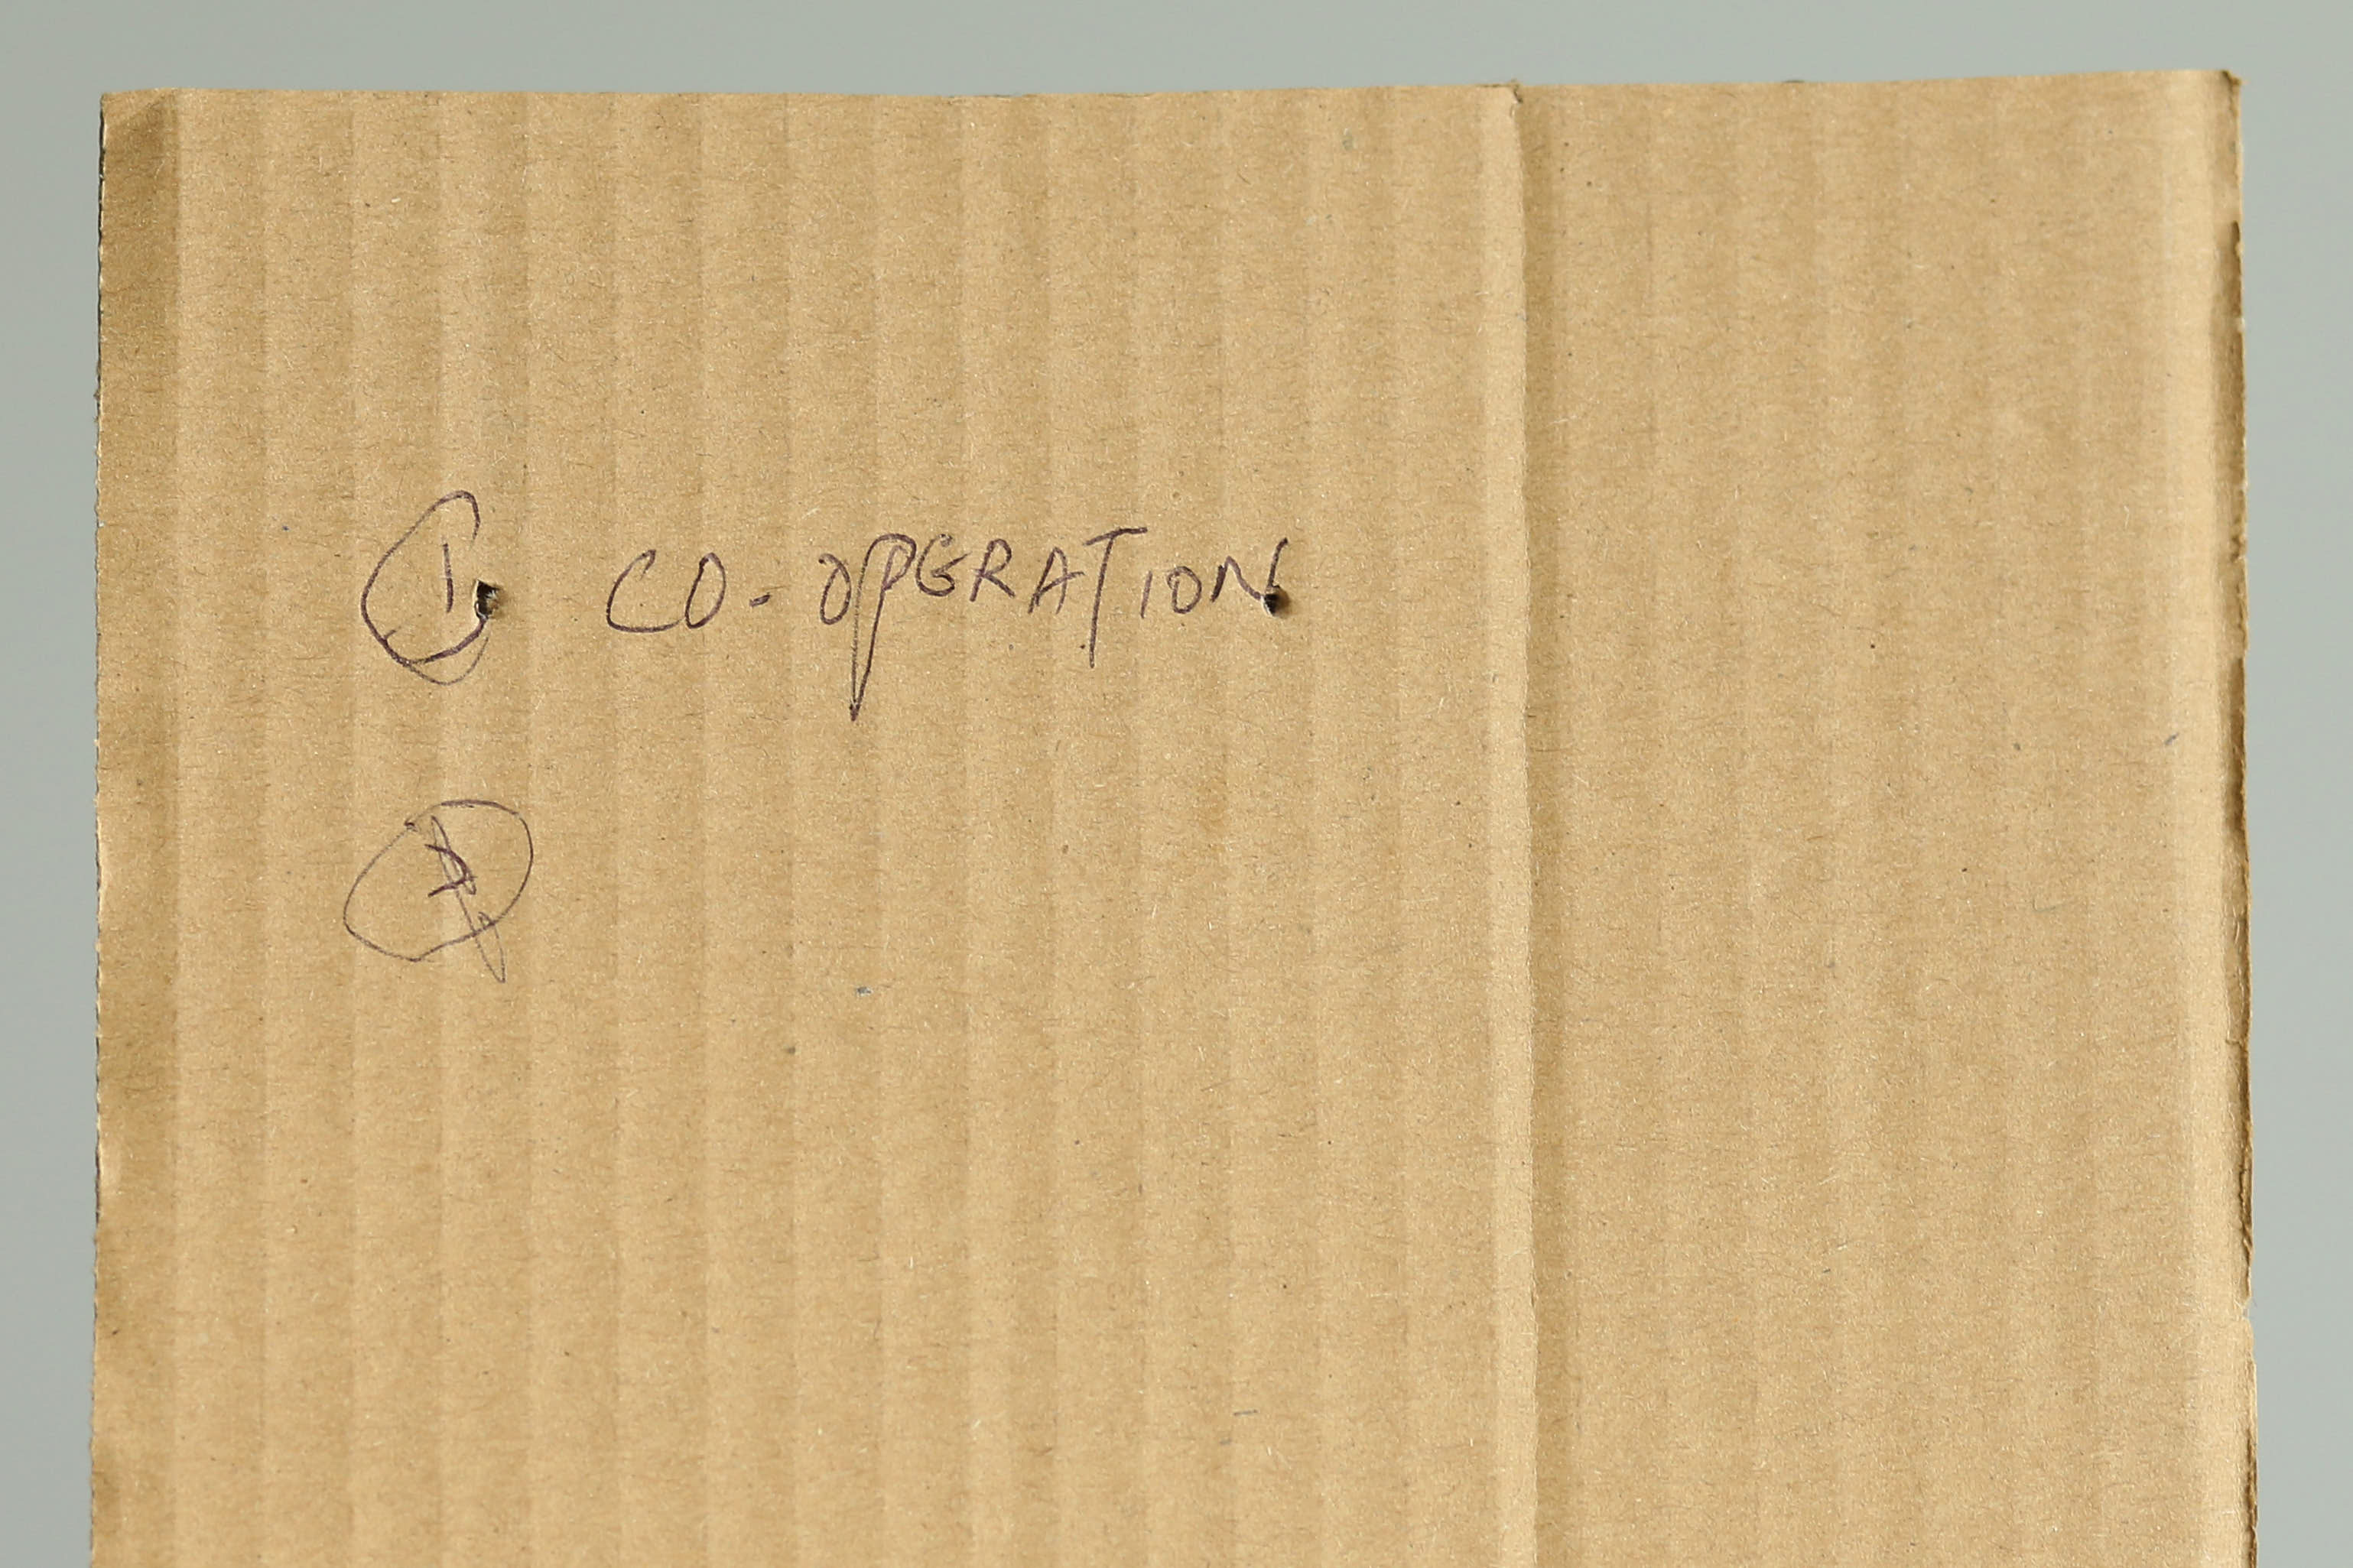 ① CO-OPERATION